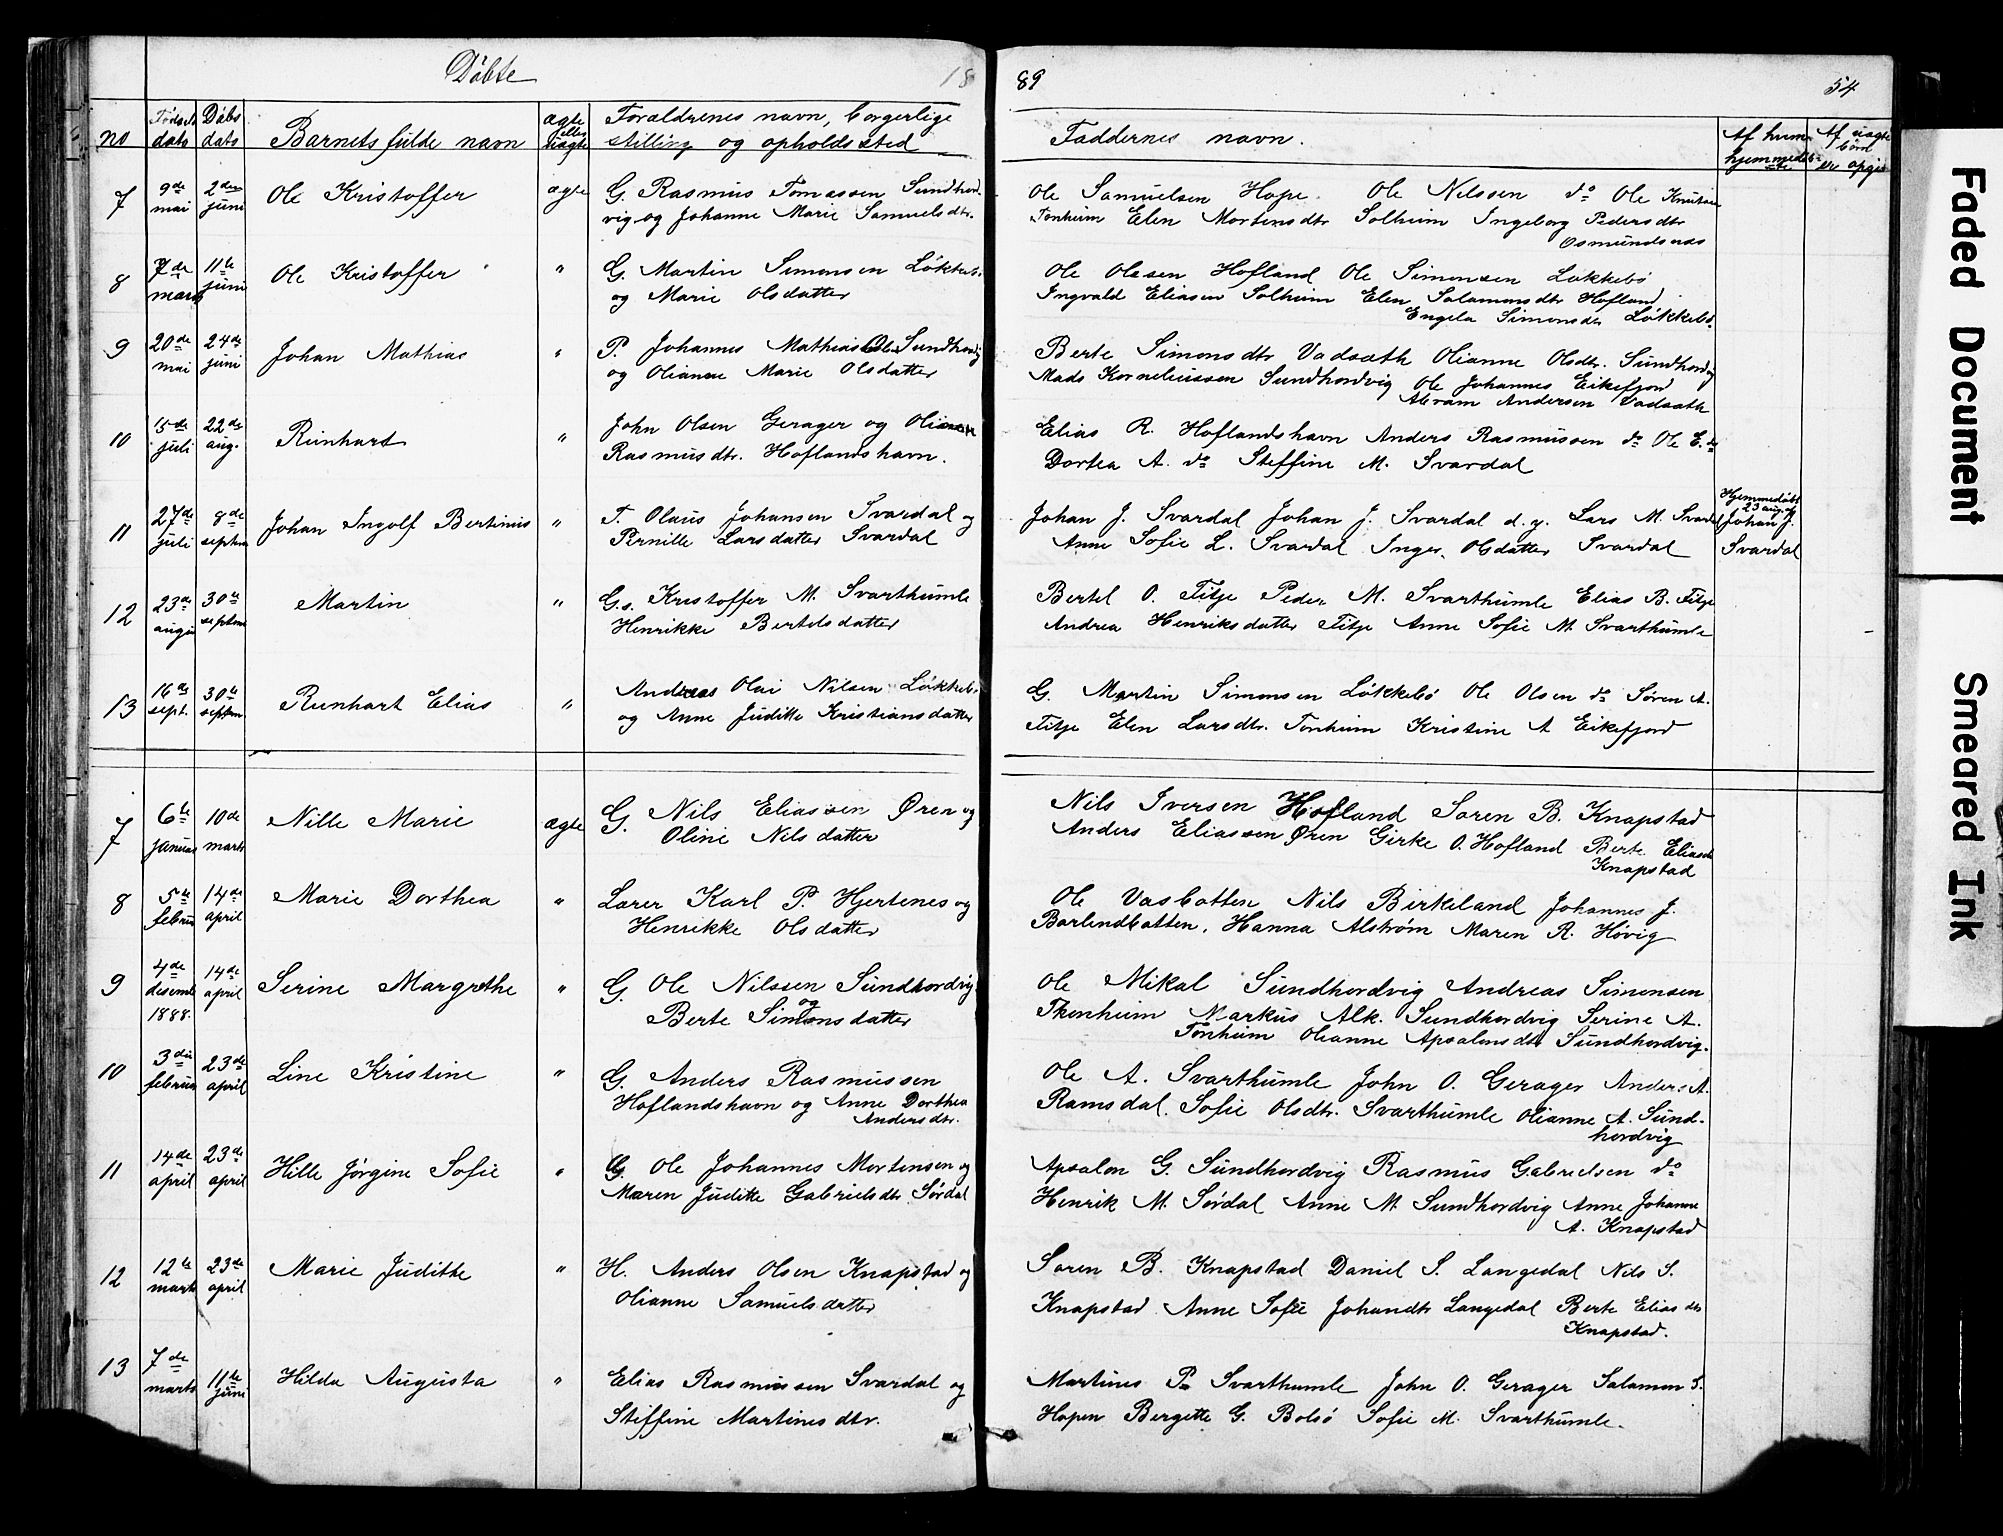 Döbte 18 89 54
no Föds dato Döbs dato Barnets fulde navn ægte eller uægte Forældrenes navn, borgerlige stilling og opholdssted Faddernes navn. Af hvem hjemmedöbte Af uægte börn er opgi
7 9de mai 2den juni Ole Kristoffer ægte G. Rasmus Tomassen Sundhord- Ole Samuelsen Hope. Ole Nilssen do Ole Knutsen
vig og Johanne Marie Samuelsdtr. Tonheim Elen Mortensdtr Solheim Ingeborg Pedersdtr
Osmundsnes
8 7de marts 11te juni Ole Kristoffer " G. Martin Simonsen Løkkebø Ole Olesen Hofland Ole Simonsen Løkkebø
og Marie Olsdatter Ingvald Eliasen Solheim Elen Salamonsdtr Hofland
Engela Simonsdtr Løkkebø.
9 20de mai 24de juni Johan Mathias " P. Johannes Mathias Olsen Sundhordvig Berte Simonsdtr Vadsæth Olianne Olsdtr. Sundhordvig
og Olianne Marie Olsdatter Mads Korneliussen Sundhordvig Ole Johannes Eikefjord
Abram Andersen Vadsæth
10 15de juli 22de aug. Reinhart " John Olsen Gerager og Olianne Elias R. Hoflandshavn Anders Rasmussen do Ole E. do
Rasmusdtr. Hoflandshavn. Dortea A. do Steffine M. Svardal
11 27de juli 8de septem Johan Ingolf Bertinius " T. Olaus Johansen Svardal og Johan J. Svardal Johan J. Svardal d.y. Lars M. Svardal Hjemmedöbt 23 aug. af Johan J. Svardal
Pernille Larsdatter Svardal Anne Sofie L. Svardal Inger Olsdatter Svardal
12 23de august 30te septem Martin " G.s. Kristoffer M. Svarthumle Bertel O. Titje Peder M. Svarthumle Elias B. Titje
Henrikke Bertelsdatter Andrea Henriksdatter Titje Anne Sofie M. Svarthumle
13 16de sept. 30te septem. Reinhart Elias " Andreas Olai Nilsen Løkkebø G. Martin Simonsen Løkkebø Ole Olsen do Søren A.
og Anne Juditte Kristiansdatter Titje Elen Larsdtr. Tonheim Kristine A Eikefjord
7 6te januar 10de marts Nille Marie ægte G. Nils Eliassen Øren og Nils Iversen Hofland Søren B. Knapstad
Oline Nilsdatter Anders Eliassen Øren Girke O. Hofland Berte Eliasdtr
Knapstad
8 5te februar 14de april Marie Dorthea " Lærer Karl P. Hjertenes og Ole Vasbotten Nils Birkeland Johannes J.
Henrikke Olsdatter Barlendbotten. Hanna Alstrøm Maren R. Høvig
9 4de desemb 1888. 14de april Serine Margrethe " G. Ole Nilssen Sundhordvig Ole Mikal Sundhordvig Andreas Simonsen
og Berte Simonsdatter Thenheim Markus Alk. Sundhordvig Serine A.
Tonheim Olianne Apsalonsdtr Sundhordvig.
10 3die februar 23de april Line Kristine " G. Anders Rasmussen Ole A. Svarthumle John O. Gerager Anders A.
Hoflandshavn og Anne Dorthea Ramsdal. Sofie Olsdtr. Svarthumle Olianne A. Sund-
Andersdtr. hordvig
11 14de april 23de april Hille Jørgine Sofie " G. Ole Johannes Mortensen og Apsalon G. Sundhordvig Rasmus Gabrielsen do
Maren Juditte Gabrielsdtr Sørdal Henrik M. Sørdal Anne M. Sundhordvig Anne Johanne
A. Knapstad
12 12te marts 23de april Marie Juditte " H. Anders Olsen Knapstad og Søren B. Knapstad Daniel S. Langedal Nils S.
Olianne Samuelsdatter Knapstad Anne Sofie Johandtr Langedal Berte Eliasdtr
Knapstad.
13 7de marts 11te juni Hilda Augusta " Elias Rasmussen Svardal og Martines P. Svarthumle John O. Gerager Salamon S.
Steffine Martinesdtr. Hopen Bergette G. Bolsø Sofie M. Svarthumle.
Faded Document
Smeared Ink